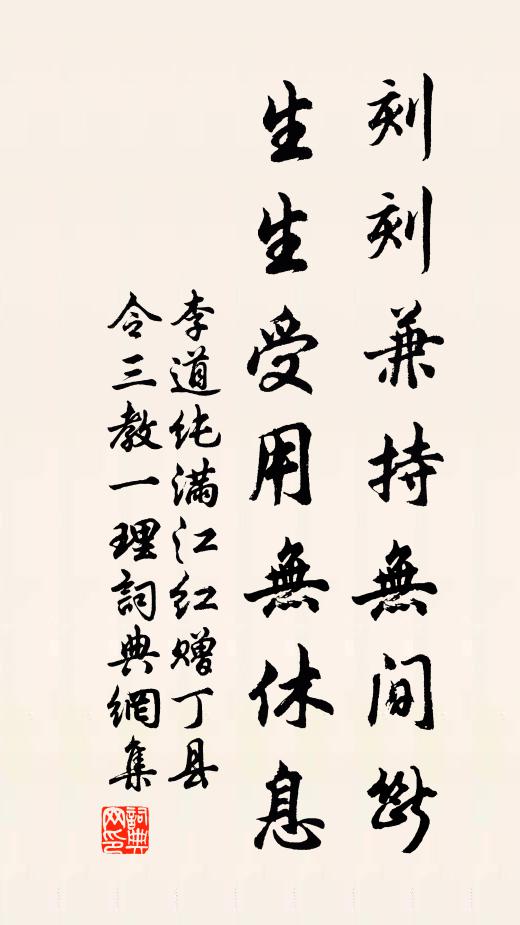 刻刻兼持無间断
生生受用無休息
李道纯满江红赠丁县
令三教一理詞典網集
詞典網印